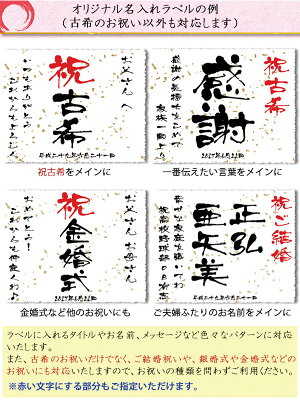 オリジナル名入れラベルの例
（古希のお祝い以外も対応します）
お父さんへ
祝
古希
いつもありがとう
平成二十九年六月二十一日
祝古希をメインに
祝古希
感謝
感謝の気持ちをこめて
家族一同より
2017年6月22日
一番伝えたい言葉をメインに
お父さん お母さん
祝
金婚式
おめでとう！
2017年6月22日
金婚式など他のお祝いにも
祝ご結婚
正弘
亜矢美
ご夫婦ふたりのお名前をメインに
ラベルに入れるタイトルやお名前、メッセージなど色々なパターンに対応
いたします。
また、古希のお祝いだけでなく、ご結婚祝いや、銀婚式や金婚式などの
お祝いにも対応いたしますので、お祝いの種類を問わずご利用ください。
※赤い文字にする部分もご指定いただけます。